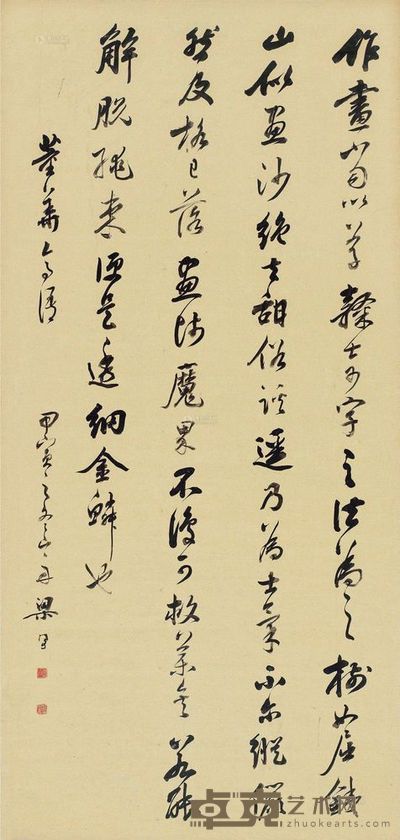 作畫當以草隸奇字之法為之樹如屈鐵
山似畫沙絕去甜俗蹊逕乃為士氣不爾縱儼
然及格已落畫師魔界不復可救藥矣若能
解脫繩束便是透網金鱗也
董華亭語
梁
艺术网
zhuokearts.com